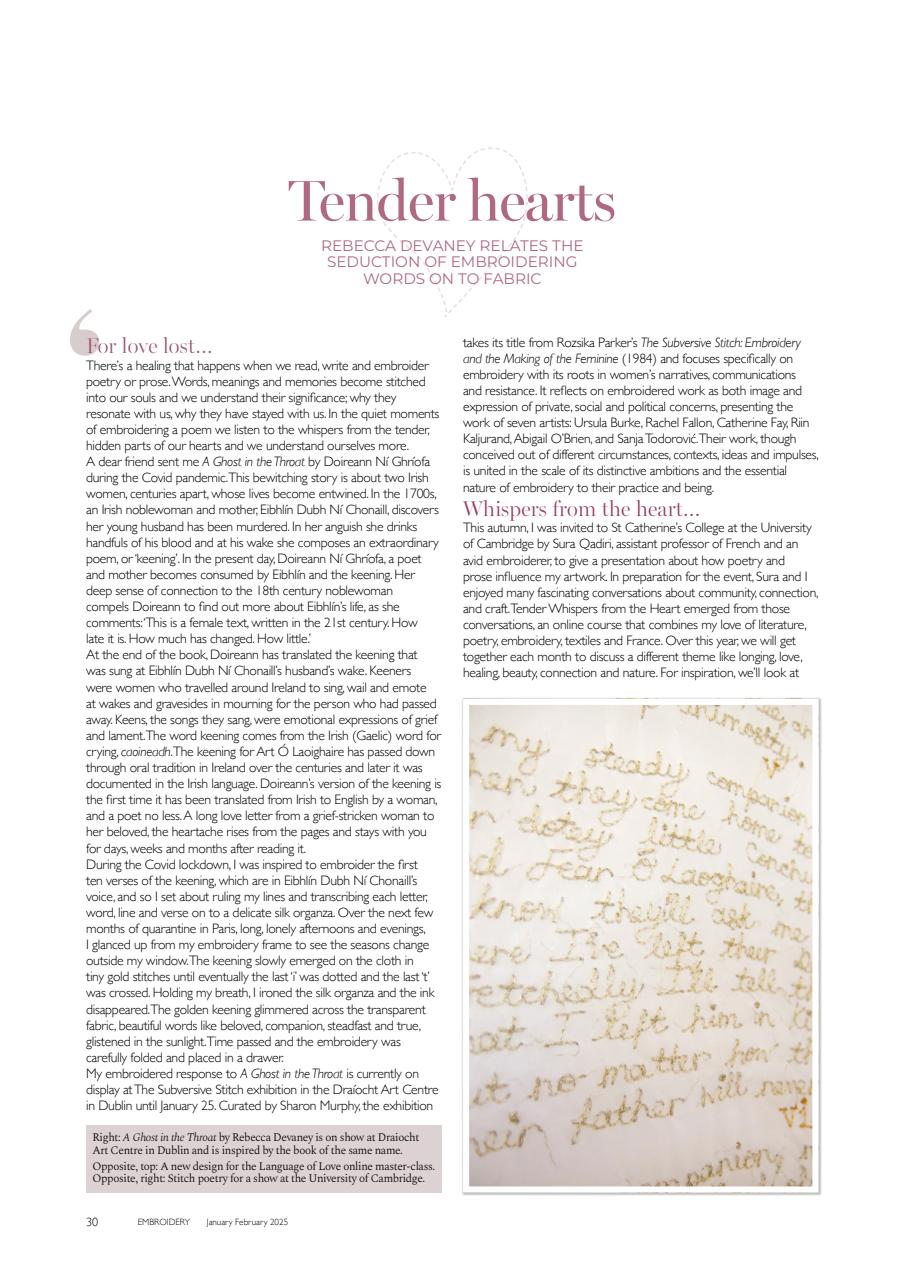 Tender hearts
REBECCA DEVANEY RELATES THE
SEDUCTION OF EMBROIDERING
WORDS ON TO FABRIC
‘
For love lost...
There’s a healing that happens when we read, write and embroider
poetry or prose. Words, meanings and memories become stitched
into our souls and we understand their significance; why they
resonate with us, why they have stayed with us. In the quiet moments
of embroidering a poem we listen to the whispers from the tender,
hidden parts of our hearts and we understand ourselves more.
A dear friend sent me A Ghost in the Throat by Doireann Ní Ghríofa
during the Covid pandemic. This bewitching story is about two Irish
women, centuries apart, whose lives become entwined. In the 1700s,
an Irish noblewoman and mother, Eibhlín Dubh Ní Chonaill, discovers
her young husband has been murdered. In her anguish she drinks
handfuls of his blood and at his wake she composes an extraordinary
poem, or ‘keening’. In the present day, Doireann Ní Ghríofa, a poet
and mother becomes consumed by Eibhlín and the keening. Her
deep sense of connection to the 18th century noblewoman
compels Doireann to find out more about Eibhlín’s life, as she
comments: ‘This is a female text, written in the 21st century. How
late it is. How much has changed. How little.’
At the end of the book, Doireann has translated the keening that
was sung at Eibhlín Dubh Ní Chonaill’s husband’s wake. Keeners
were women who travelled around Ireland to sing, wail and emote
at wakes and gravesides in mourning for the person who had passed
away. Keens, the songs they sang, were emotional expressions of grief
and lament. The word keening comes from the Irish (Gaelic) word for
crying, caoineadh. The keening for Art Ó Laoighaire has passed down
through oral tradition in Ireland over the centuries and later it was
documented in the Irish language. Doireann’s version of the keening is
the first time it has been translated from Irish to English by a woman,
and a poet no less. A long love letter from a grief-stricken woman to
her beloved, the heartache rises from the pages and stays with you
for days, weeks and months after reading it.
During the Covid lockdown, I was inspired to embroider the first
ten verses of the keening, which are in Eibhlín Dubh Ní Chonaill’s
voice, and so I set about ruling my lines and transcribing each letter,
word, line and verse on to a delicate silk organza. Over the next few
months of quarantine in Paris, long, lonely afternoons and evenings,
I glanced up from my embroidery frame to see the seasons change
outside my window. The keening slowly emerged on the cloth in
tiny gold stitches until eventually the last ‘i’ was dotted and the last ‘t’
was crossed. Holding my breath, I ironed the silk organza and the ink
disappeared. The golden keening glimmered across the transparent
fabric, beautiful words like beloved, companion, steadfast and true,
glistened in the sunlight. Time passed and the embroidery was
carefully folded and placed in a drawer.
My embroidered response to A Ghost in the Throat is currently on
display at The Subversive Stitch exhibition in the Draíocht Art Centre
in Dublin until January 25. Curated by Sharon Murphy, the exhibition
takes its title from Rozsika Parker’s The Subversive Stitch: Embroidery
and the Making of the Feminine (1984) and focuses specifically on
embroidery with its roots in women’s narratives, communications
and resistance. It reflects on embroidered work as both image and
expression of private, social and political concerns, presenting the
work of seven artists: Ursula Burke, Rachel Fallon, Catherine Fay, Riin
Kaljurand, Abigail O’Brien, and Sanja Todorović. Their work, though
conceived out of different circumstances, contexts, ideas and impulses,
is united in the scale of its distinctive ambitions and the essential
nature of embroidery to their practice and being.
Whispers from the heart...
This autumn, I was invited to St Catherine’s College at the University
of Cambridge by Sura Qadiri, assistant professor of French and an
avid embroiderer, to give a presentation about how poetry and
prose influence my artwork. In preparation for the event, Sura and I
enjoyed many fascinating conversations about community, connection,
and craft. Tender Whispers from the Heart emerged from those
conversations, an online course that combines my love of literature,
poetry, embroidery, textiles and France. Over this year, we will get
together each month to discuss a different theme like longing, love,
healing, beauty, connection and nature. For inspiration, we’ll look at
animosity.
V.
my steady companion,
they come home to
dotey little
Fear Ó Laoghaire,
know they'll ask me
I've left their
I'll tell
I left him in
no matter how
father will never
VI
Right: A Ghost in the Throat by Rebecca Devaney is on show at Draiocht
Art Centre in Dublin and is inspired by the book of the same name.
Opposite, top: A new design for the Language of Love online master-class.
Opposite, right: Stitch poetry for a show at the University of Cambridge.
30 EMBROIDERY January February 2025